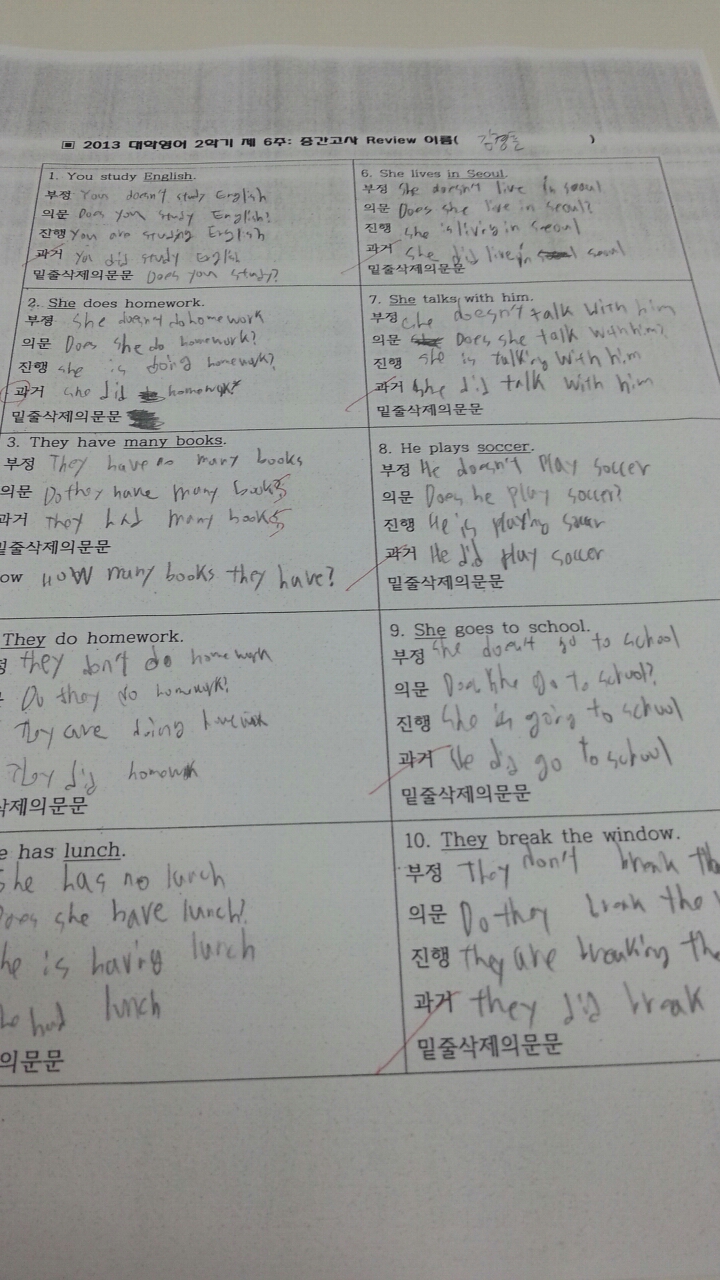 ▣ 2013 대학영어 2학기 제 6주: 중간고사 Review 이름( )
1. You study English.
부정 You doesn't study English
의문 Does you study English?
진행 You are studing English
과거 You did study English
밑줄삭제의문문 Does you study?
2. She does homework.
부정 She doesn't do homework
의문 Does she do homework?
진행 she is doing homework?
과거 she did homework
밑줄삭제의문문
3. They have many books.
부정 They have no many books
의문 Do they have many books
과거 They had many books
밑줄삭제의문문
ow HOW many books they have?
They do homework.
they don't do homework
Do they do homework?
They are doing
They did homework
삭제의문문
e has lunch.
She has no lunch
Does she have lunch?
he is having lunch
he had lunch
의문문
6. She lives in Seoul.
부정 She doesn't live in seoul
의문 Does she live in seoul?
진행 she is living in seoul
과거 she did live in seoul
밑줄삭제의문문
7. She talks with him.
부정 she doesn't talk with him
의문 Does she talk with him?
진행 she is talking with him
과거 she did talk with him
밑줄삭제의문문
8. He plays soccer.
부정 He doesn't play soccer
의문 Does he play soccer?
진행 He is playing soccer
과거 He did play soccer
밑줄삭제의문문
9. She goes to school.
부정 She doesn't go to school
의문 Does she go to school?
진행 She is going to school
과거 did go to school
밑줄삭제의문문
10. They break the window.
부정 They don't break the
의문 Do they break the
진행 they are breaking the
과거 they did break
밑줄삭제의문문